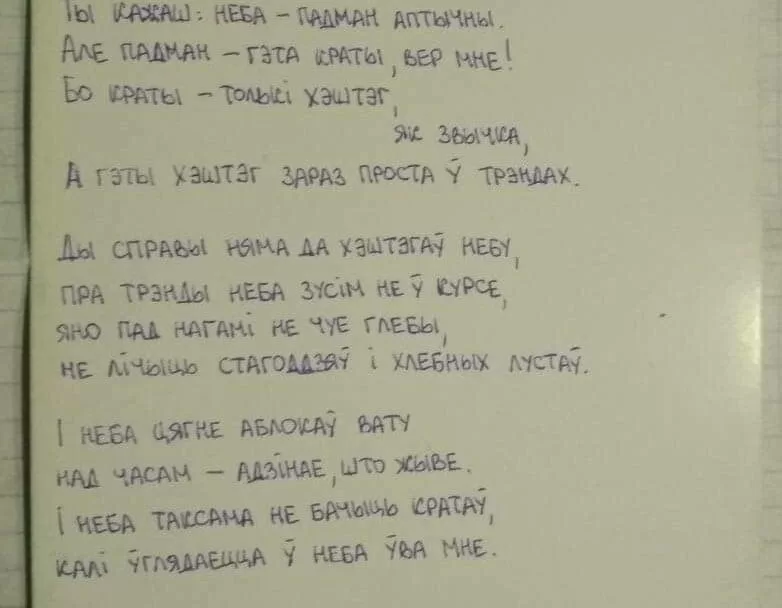 Ты кажаш: неба – падман аптычны.
Але падман – гэта краты, вер мне!
Бо краты – толькі хэштэг,
як звычка,
А гэты хэштэг зараз проста ў трэндах.
Ды справы няма да хэштэгаў небу,
пра трэнды неба зусім не ў курсе,
яно пад нагамі не чуе глебы,
не лічыць стагоддзяў і хлебных лустаў.
І неба цягне аблокаў вату
над часам – адзінае, што жыве.
І неба таксама не бачыць кратаў,
калі ўглядаецца ў неба ўва мне.